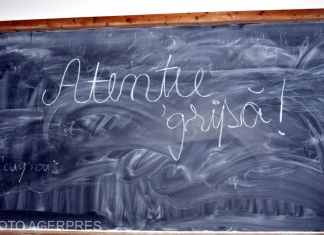 Atentie
gripă!
FOTO AGERPRES